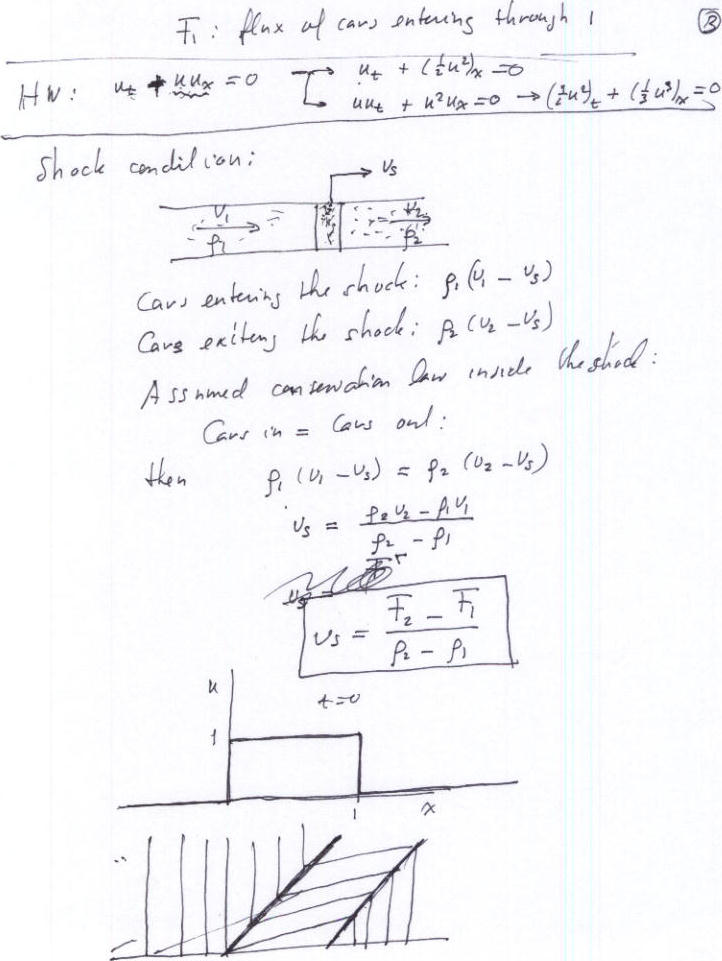 F₁ : flux of cars entering through 1
③
HW: uₜ + uuₓ = 0 → uₜ + (½u²)ₓ = 0
→ uuₜ + u²uₓ = 0 → (½u²)ₜ + (⅓u³)ₓ = 0
Shock condition:
vₛ
v₁ v₂
ρ₁ ρ₂
Cars entering the shock: ρ₁ (v₁ − vₛ)
Cars exiteng the shock: ρ₂ (v₂ − vₛ)
Assumed conservation law inside the shock:
Cars in = Cars out:
then ρ₁ (v₁ − vₛ) = ρ₂ (v₂ − vₛ)
vₛ = (ρ₂v₂ − ρ₁v₁) / (ρ₂ − ρ₁)
vₛ = (F₂ − F₁) / (ρ₂ − ρ₁)
u
t=0
1
1 x